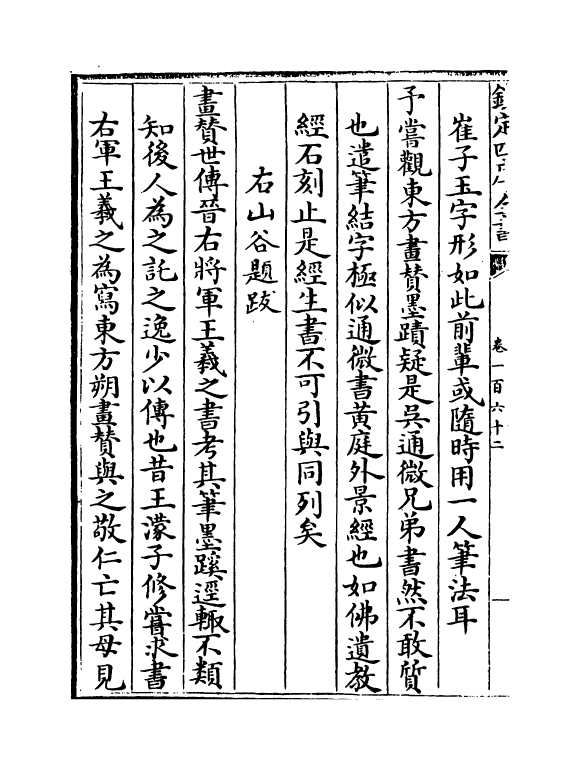 欽定四庫全書
卷一百六十二
崔子玉字形如此前輩或隨時用一人筆法耳
予嘗觀東方畫賛墨蹟疑是吳通微兄弟書然不敢質
也遣筆結字極似通微書黄庭外景經也如佛遺教
經石刻止是經生書不可引與同列矣
右山谷題跋
畫賛世傳晉右將軍王羲之書考其筆墨蹊逕輙不類
知後人為之託之逸少以傳也昔王濛子修嘗求書
右軍王羲之為寫東方朔畫賛與之敬仁亡其母見